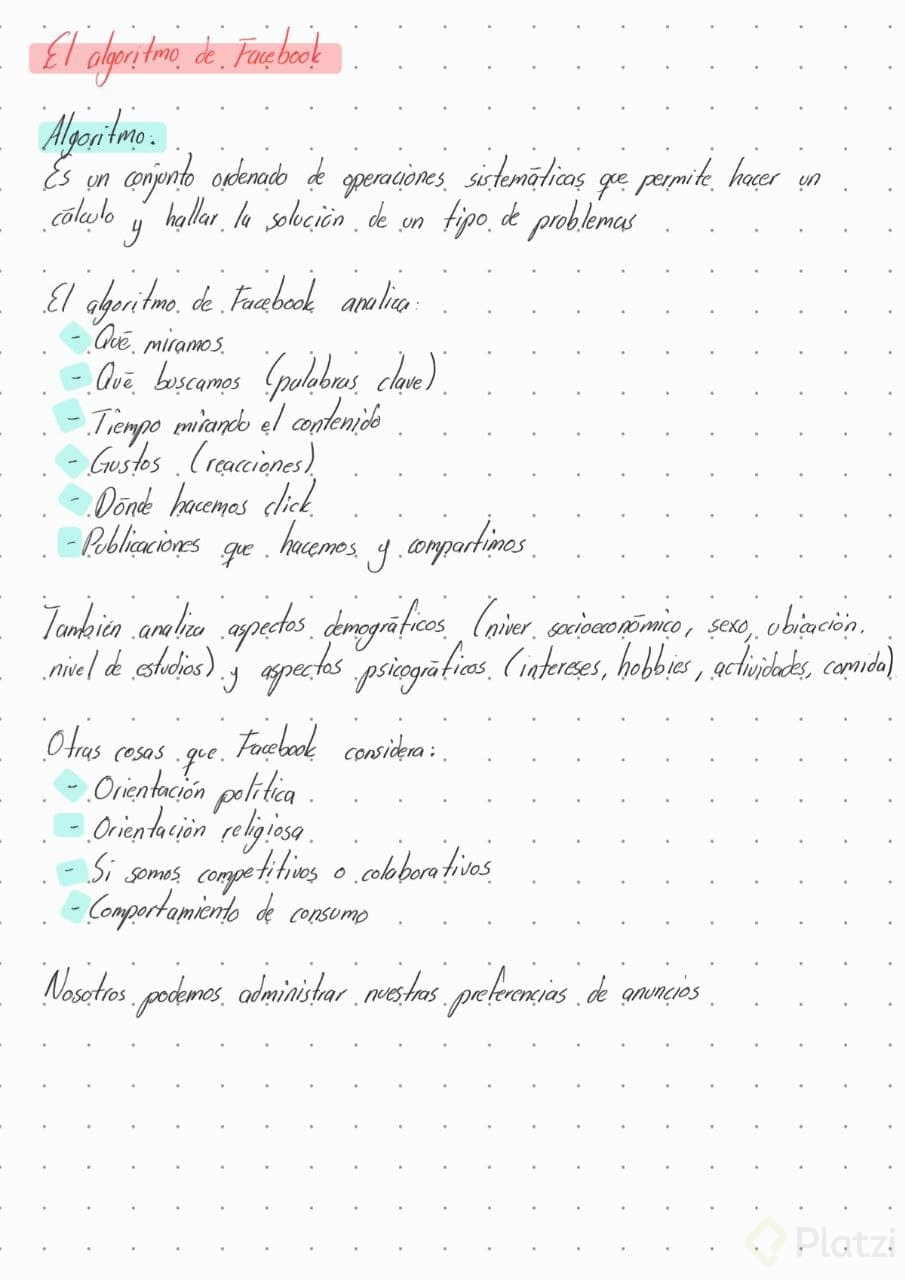 El algoritmo de Facebook
Algoritmo:
Es un conjunto ordenado de operaciones sistemáticas que permite hacer un
cálculo y hallar la solución de un tipo de problemas
El algoritmo de Facebook analiza:
- Qué miramos
- Qué buscamos (palabras clave)
- Tiempo mirando el contenido
- Gustos (reacciones)
- Dónde hacemos click
- Publicaciones que hacemos y compartimos
También analiza aspectos demográficos (niver socioeconómico, sexo, ubicación,
nivel de estudios) y aspectos psicográficos (intereses, hobbies, actividades, comida)
Otras cosas que Facebook considera:
- Orientación política
- Orientación religiosa
- Si somos competitivos o colaborativos
- Comportamiento de consumo
Nosotros podemos administrar nuestras preferencias de anuncios
Platzi